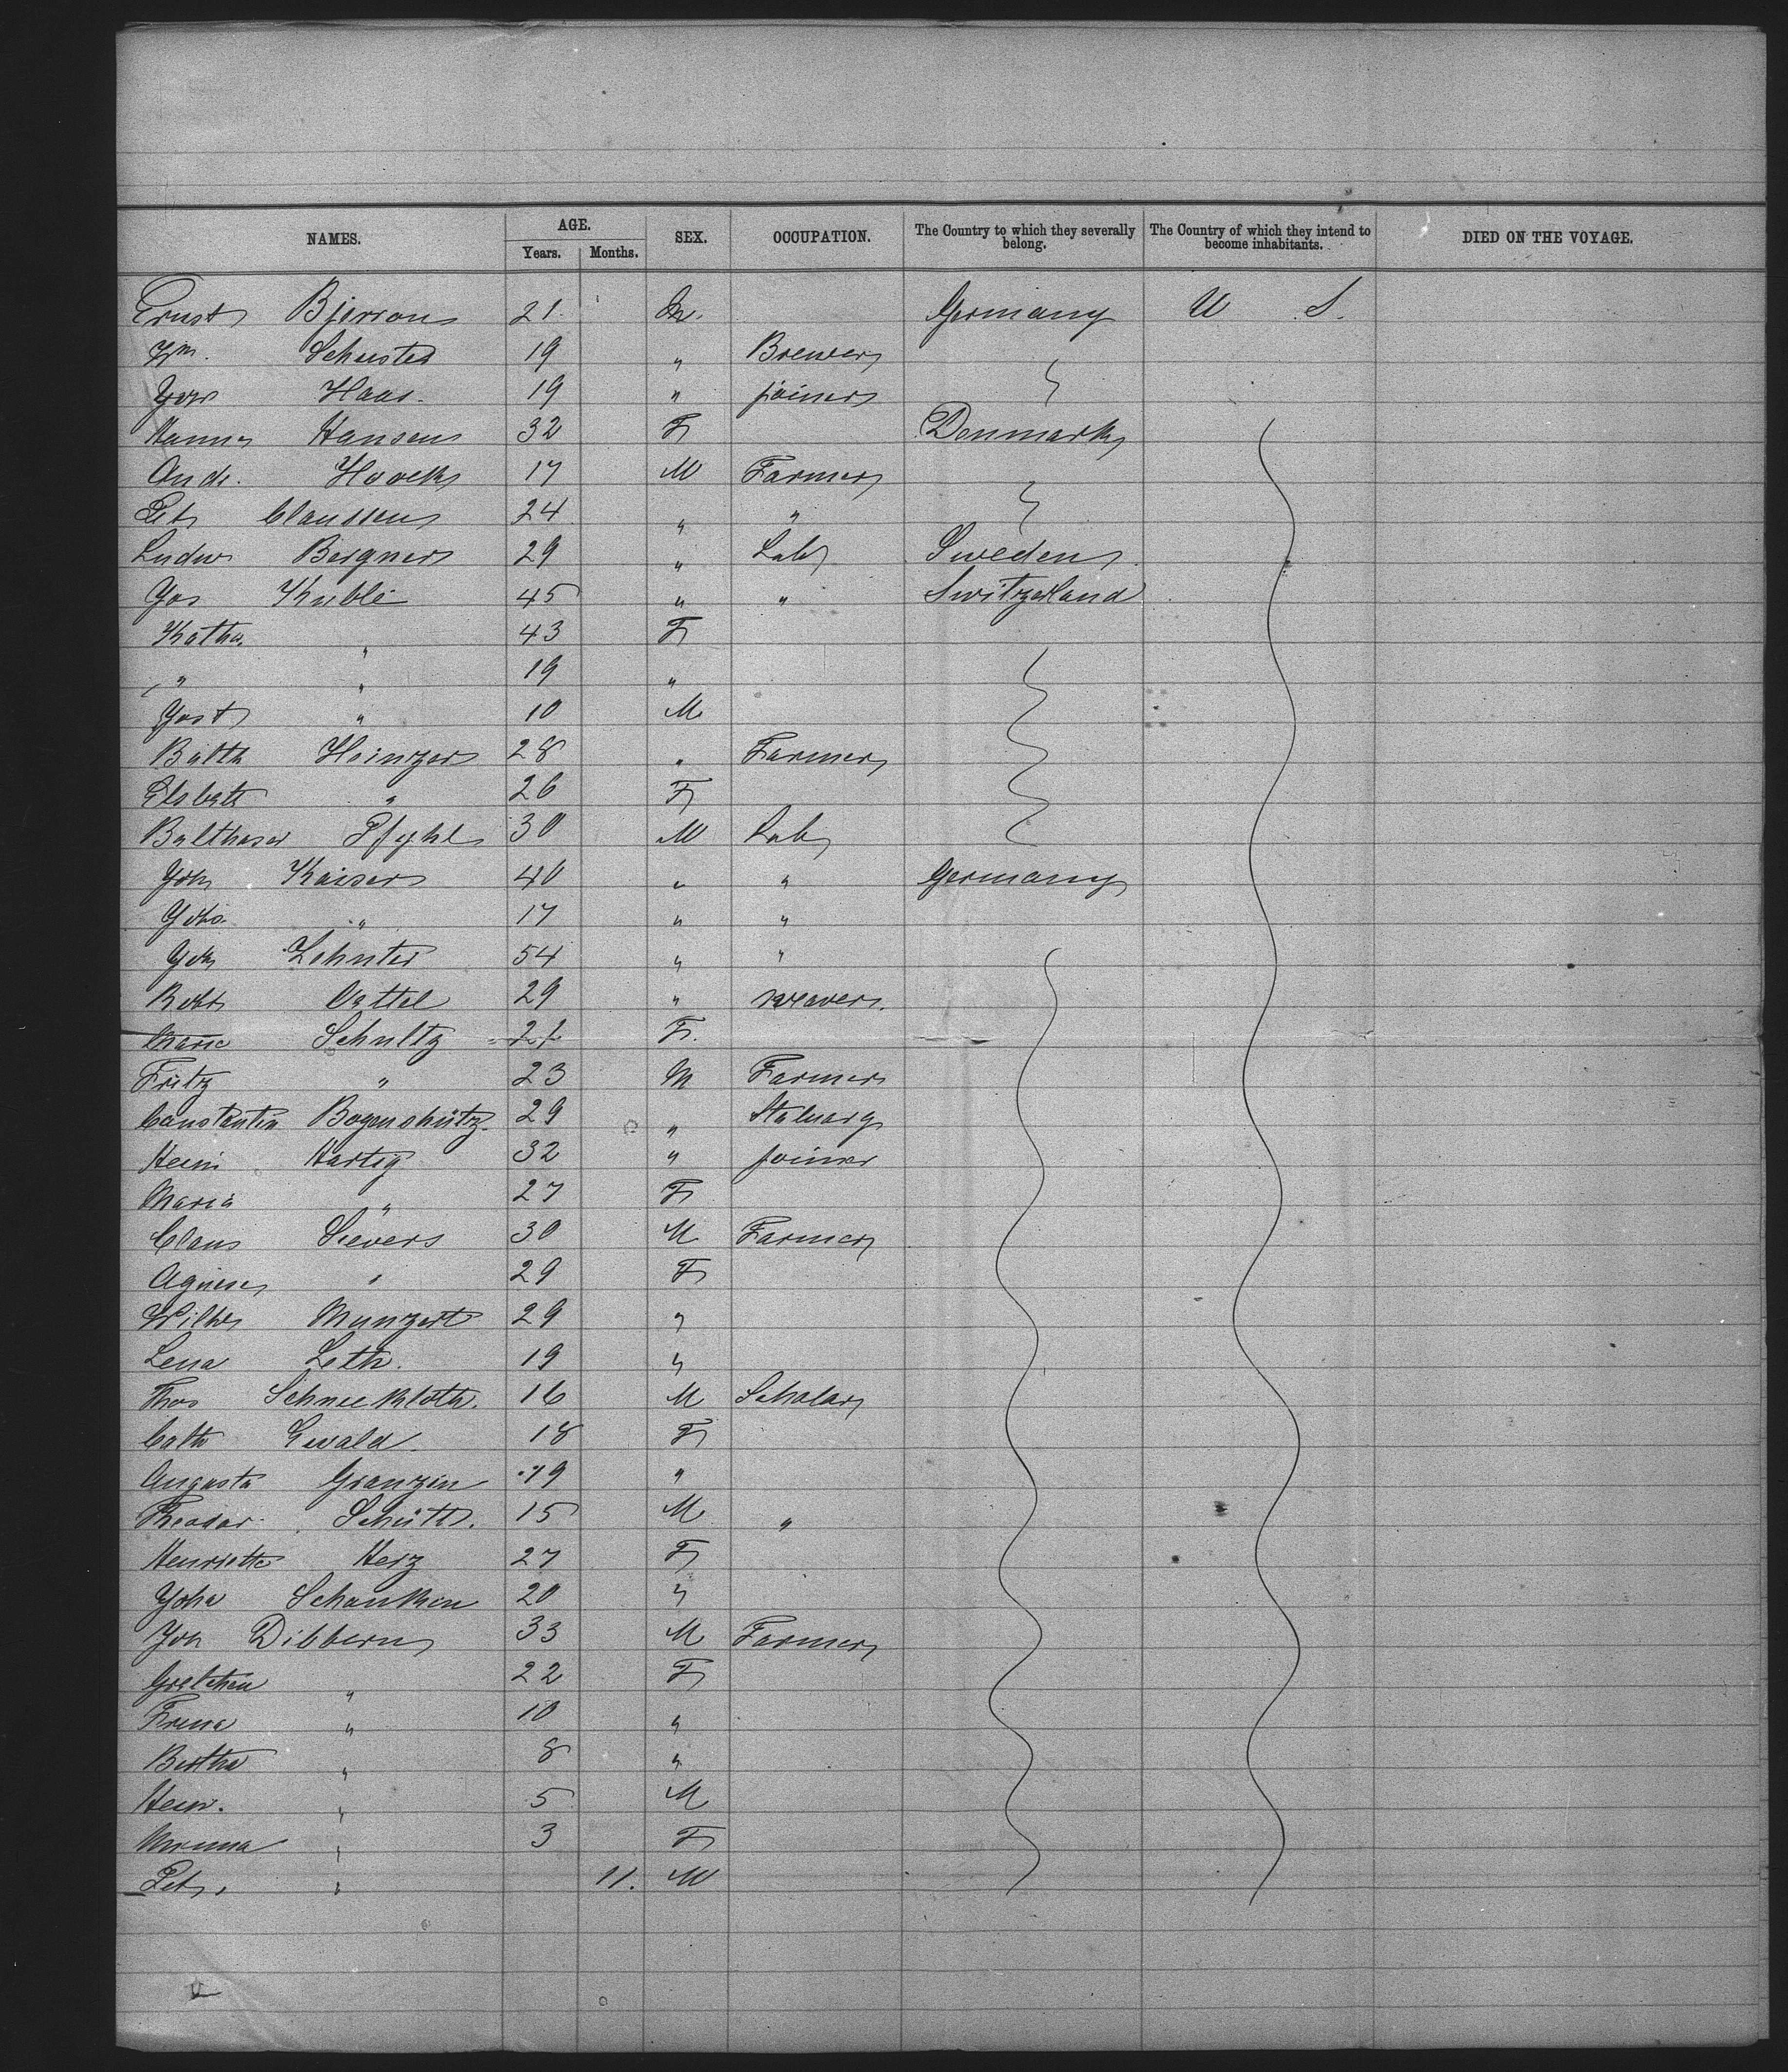 NAMES. AGE. SEX. OCCUPATION. The Country to which they severally belong. The Country of which they intend to become inhabitants. DIED ON THE VOYAGE.
Years. Months.
Ernst Bjerrons 21. M. Germany U S.
Wm. Schuster 19 " Brewer
Haas. 19 " joiner
Hanna Hansen 32 F Denmark
Andr. Hoock 17 M Farmer
Pet Claussen 24 " "
Ludw Bergner 29 " Lab Sweden
Jos Kuble 45 " " Switzerland
Katha. " 43 F
" " 19 "
Jost " 10 M
Balth Heinzer 28 " Farmer
Elsbeth " 26 F
Balthasar Pfyhl 30 M Lab
Joh Kaiser 40 " " Germany
" 17 " "
Joh Zehnter 54 " "
Robt Oettel 29 " weaver.
Marie Schultz 21 F.
Fritz " 23 M Farmer
Constantin Bogenshütz. 29 "
Heinr Hartig 32 " joiner
Maria " 27 F
Claus Sievers 30 M Farmer
Agnes " 29 F
Wilh Munzert 29 "
Lena Leth. 19 "
Thos Schneekloth. 16 M Scholar
Cath Ewald. 18 F
Augusta Granzin 19 "
Theodor Schütt. 15 M "
Henriette Herz 27 F
Joha Schanken 20 "
Joh Dibbern 33 M Farmer
Gretchen " 22 F
" 10 "
Bertha " 8 "
Heinr. " 5 M
" 3 F
Pet. " 11. M